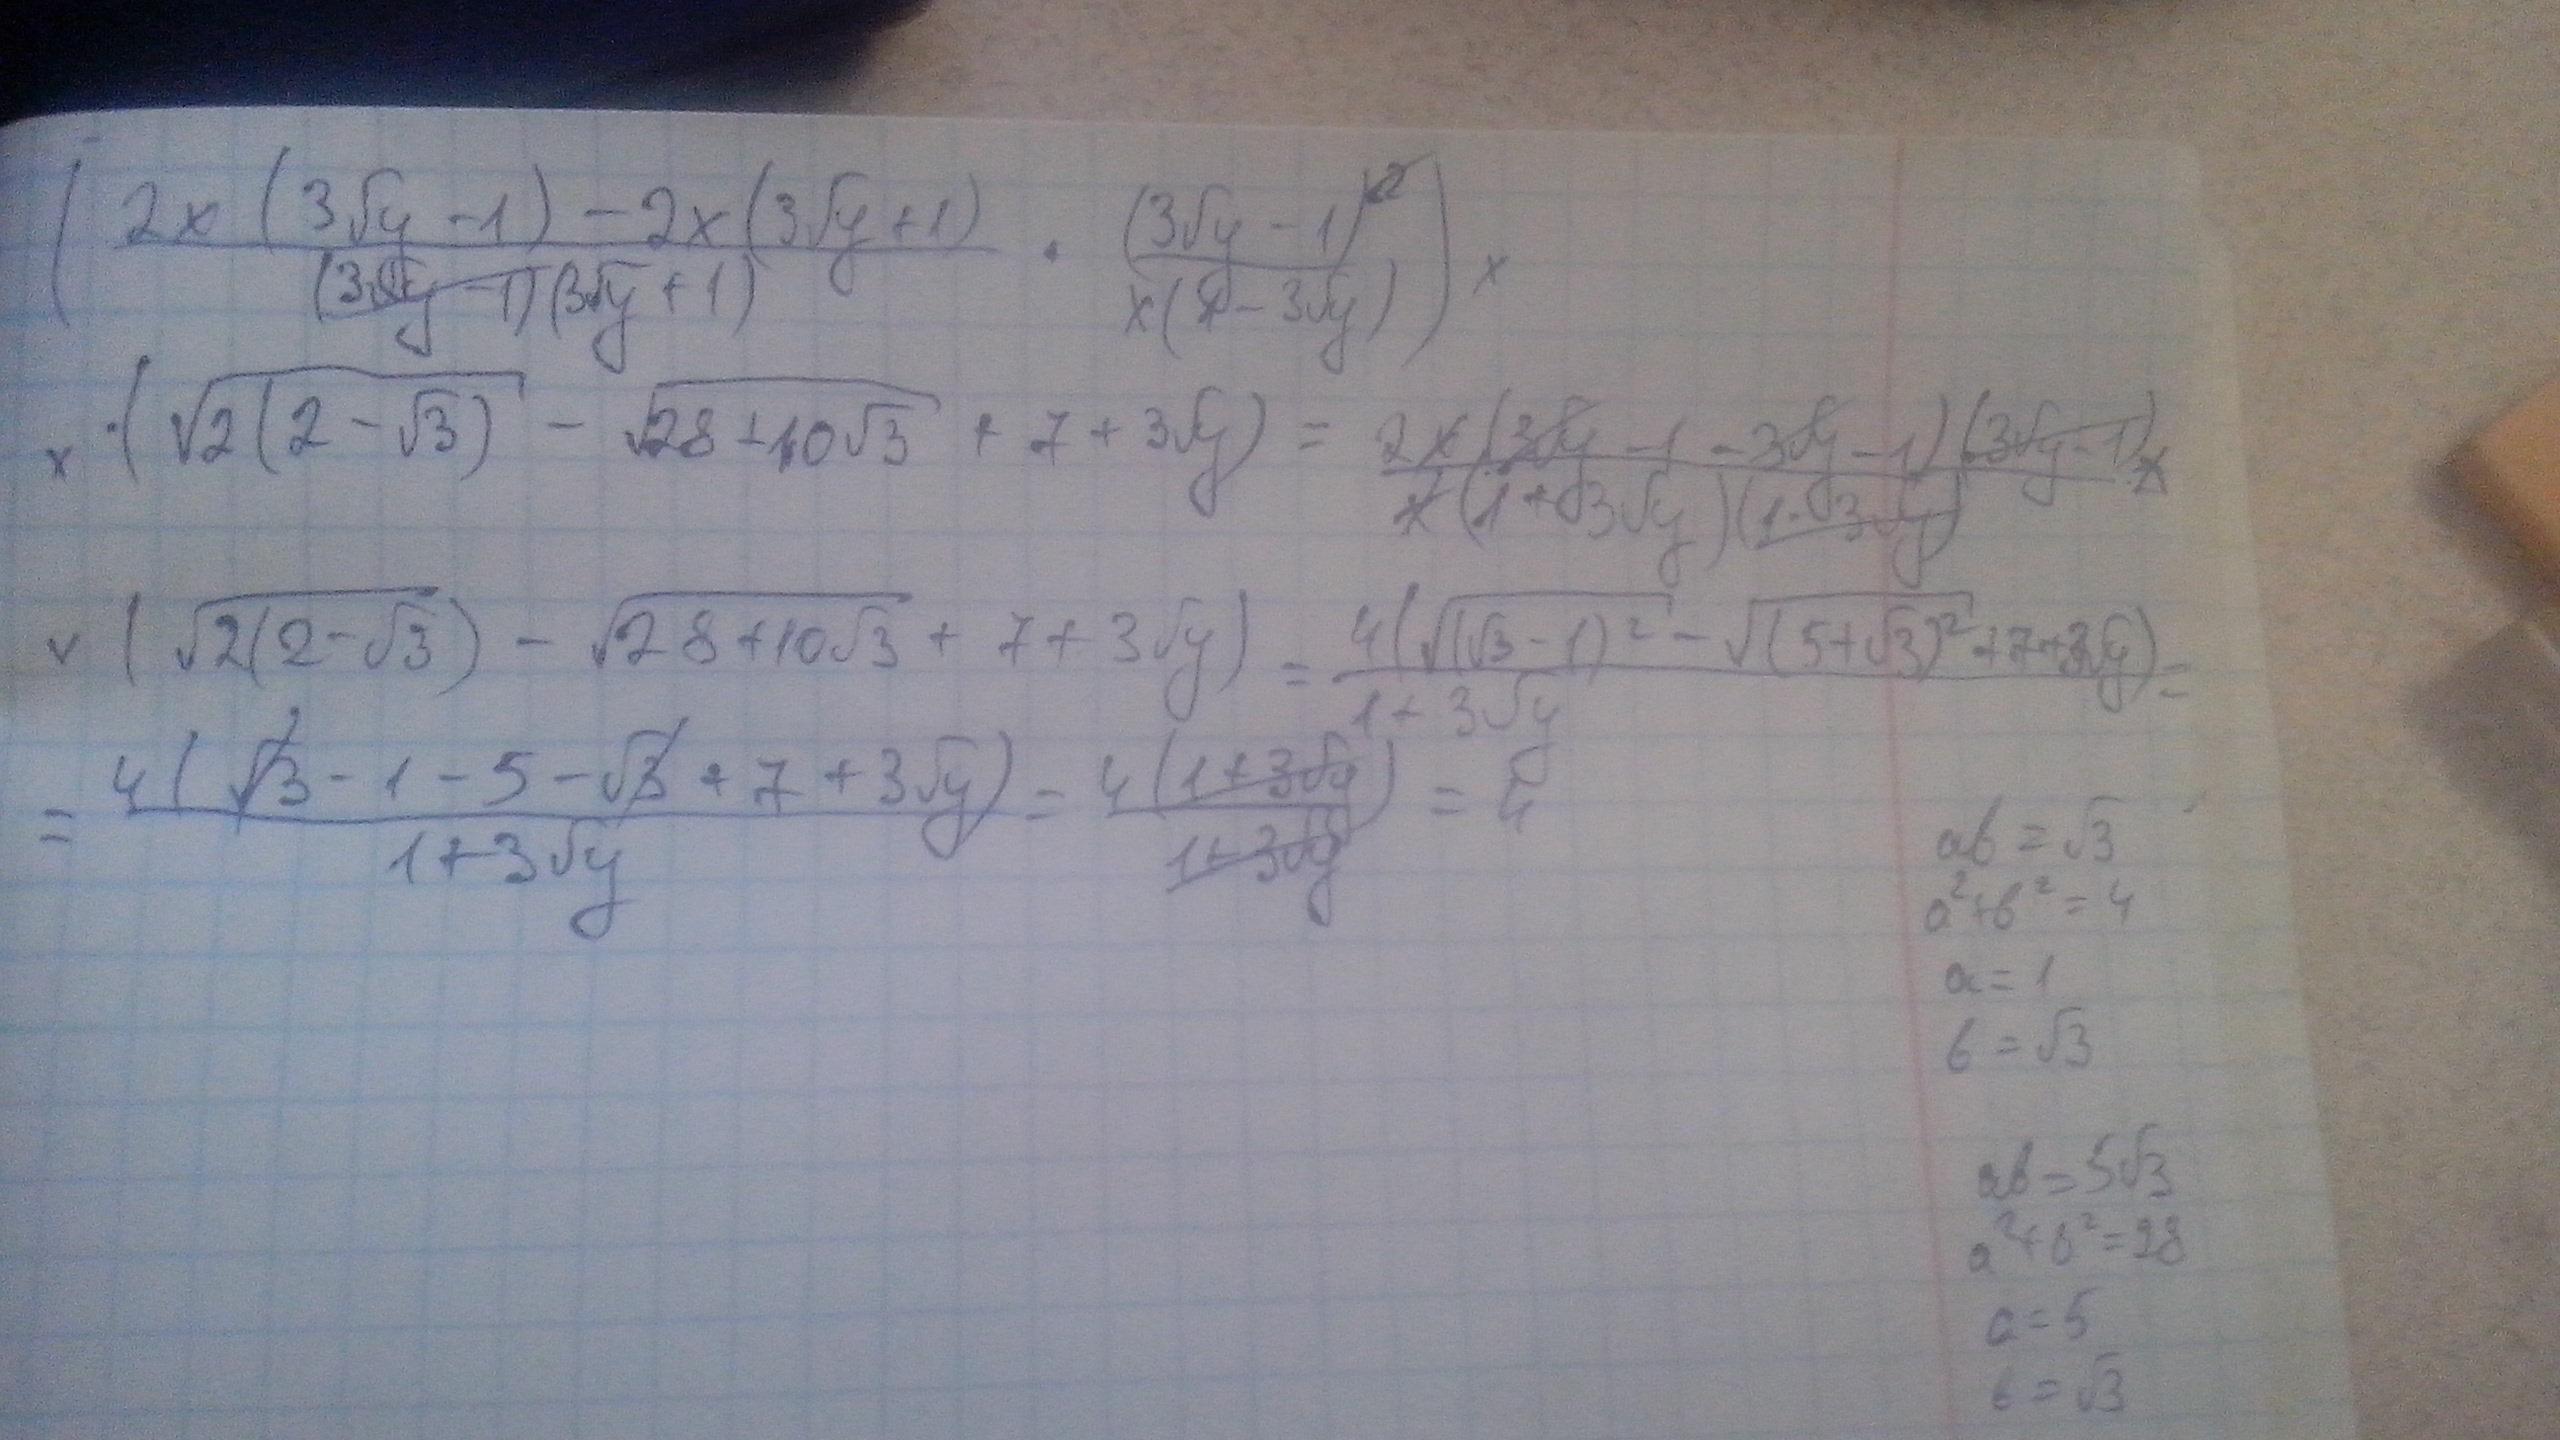 ( (2x(3√y - 1) - 2x(3√y + 1)) / ((3√y - 1)(3√y + 1)) · (3√y - 1)² / (x(1 - 3√y)) ) ×
× · (√(2(2 - √3)) - √(28 + 10√3) + 7 + 3√y) = (2x(3√y - 1 - 3√y - 1)(3√y - 1)) / (x(1 + √3√y)(1 - √3√y)) ×
× (√(2(2 - √3)) - √(28 + 10√3) + 7 + 3√y) = 4(√((√3 - 1)²) - √((5 + √3)²) + 7 + 3√y) / (1 + 3√y) =
= 4(√3 - 1 - 5 - √3 + 7 + 3√y) / (1 + 3√y) = 4(1 + 3√y) / (1 + 3√y) = 4
ab = √3
a² + b² = 4
a = 1
b = √3
ab = 5√3
a² + b² = 28
a = 5
b = √3